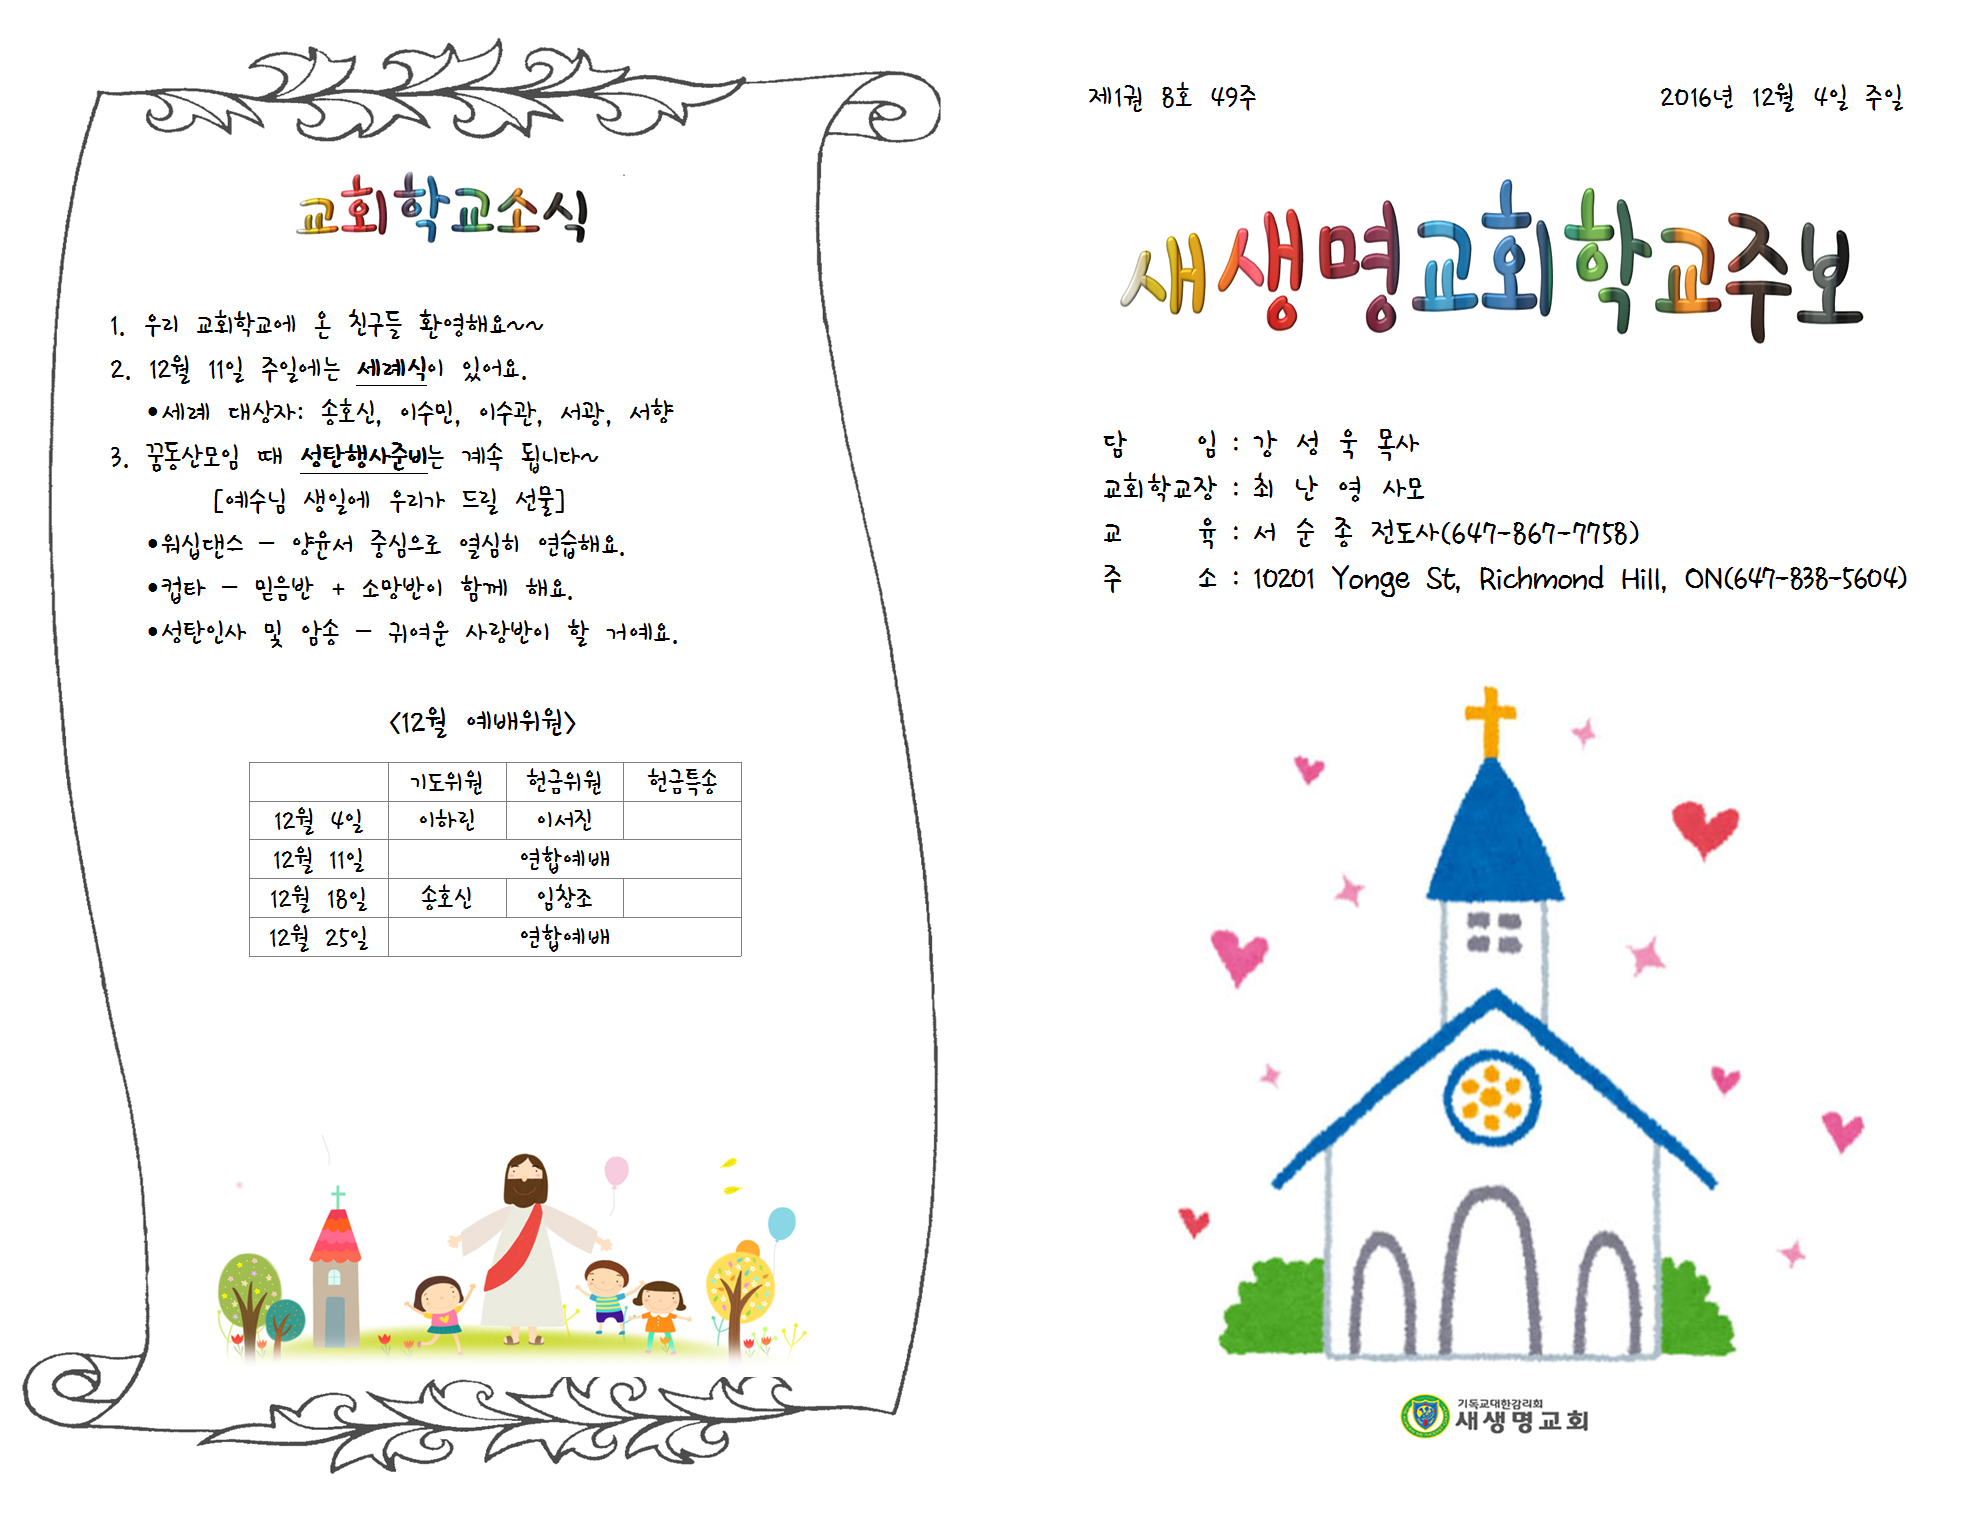 교회학교소식
1. 우리 교회학교에 온 친구들 환영해요~~
2. 12월 11일 주일에는 세례식이 있어요.
•세례 대상자: 송호신, 이수민, 이수관, 서광, 서향
3. 꿈동산모임 때 성탄행사준비는 계속 됩니다~
[예수님 생일에 우리가 드릴 선물]
•워십댄스 - 양윤서 중심으로 열심히 연습해요.
•컵타 - 믿음반 + 소망반이 함께 해요.
•성탄인사 및 암송 - 귀여운 사랑반이 할 거예요.
<12월 예배위원>
기도위원 헌금위원 헌금특송
12월 4일 이하린 이서진
12월 11일 연합예배
12월 18일 송호신 임창조
12월 25일 연합예배
제1권 8호 49주 2016년 12월 4일 주일
새생명교회학교주보
담 임 : 강 성 욱 목사
교회학교장 : 최 난 영 사모
교 육 : 서 순 종 전도사(647-867-7758)
주 소 : 10201 Yonge St, Richmond Hill, ON(647-838-5604)
기독교대한감리회
새생명교회